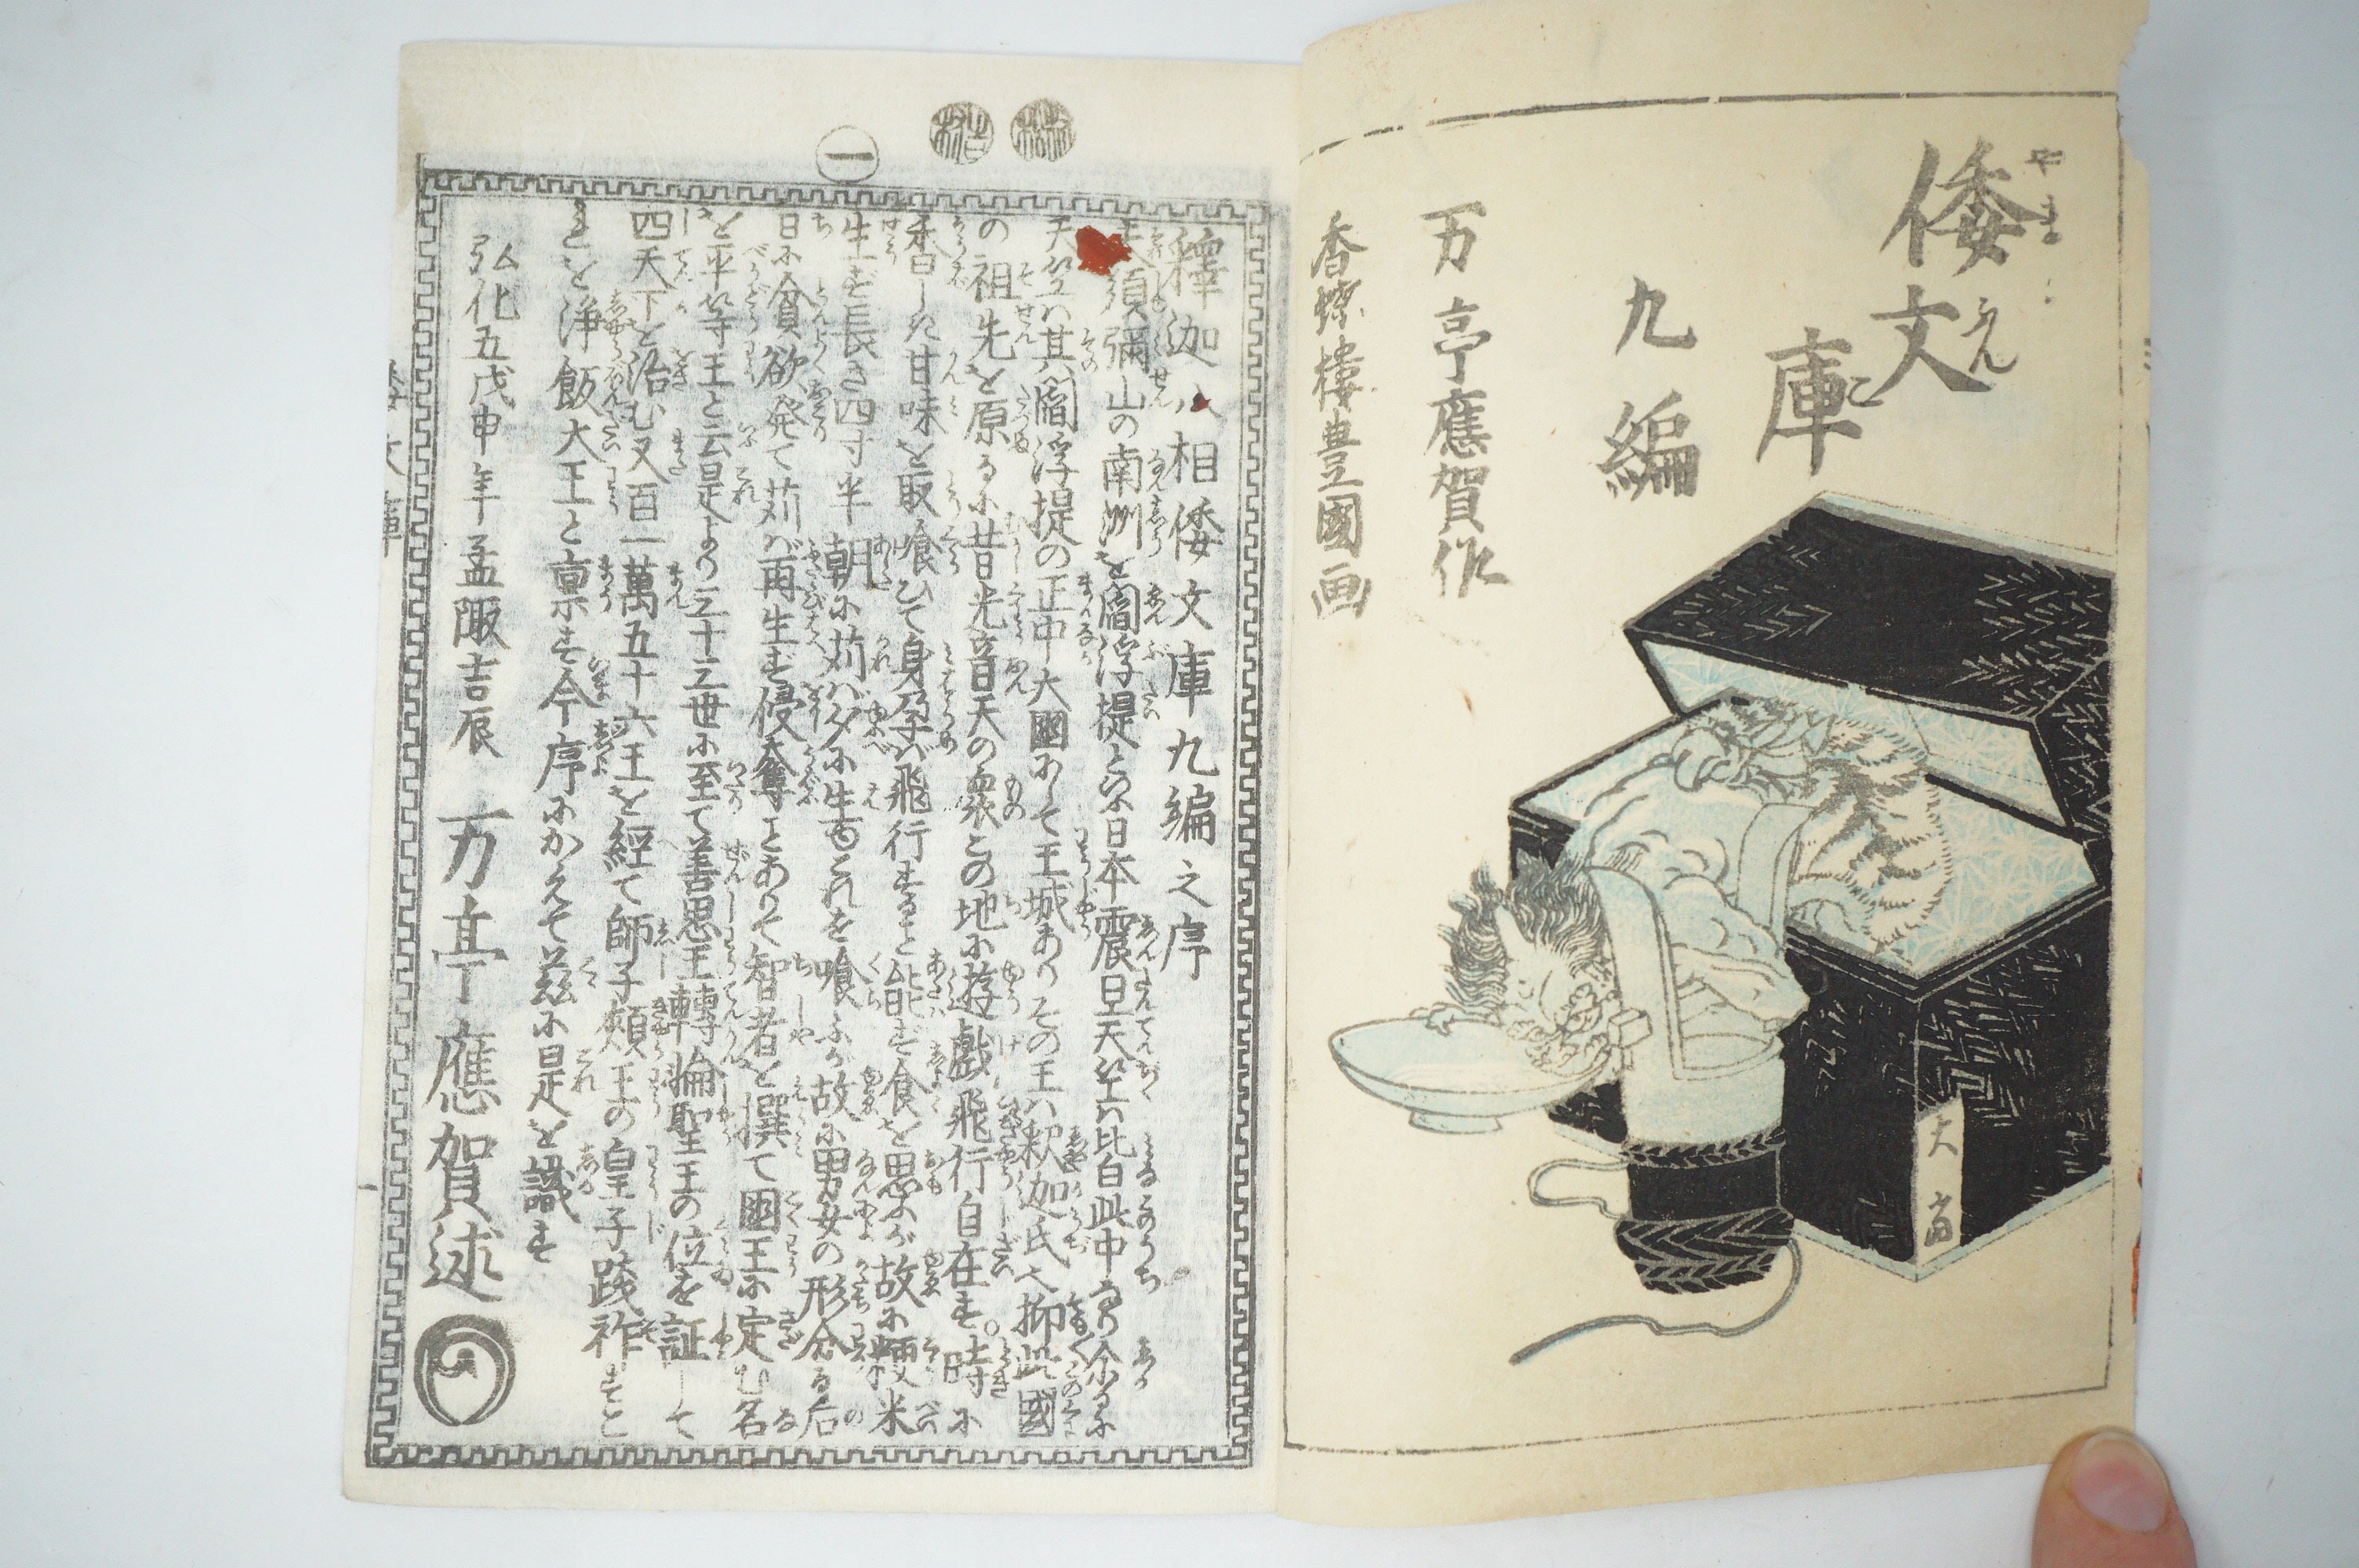 倭文庫
やま
ぶんこ
九編
万亭應賀作
香蝶樓豊國画
大當
一
釋迦八相倭文庫九編之序
須彌山の南洲を閻浮提と云日本震旦天竺ハ比自此中
天竺ハ其閻浮提の正中大國にして王城ありその王ハ釈迦氏也抑此國
の祖先を原るに昔光音天の衆この地に遊戯飛行自在す。時に
香しき甘味を取喰ひて身孕バ飛行すること能ず食を思ふが故に粳米
生ず長さ四寸半朝に苅ハ夕に生じこれを喰ふが故に男女の形分る后
日に貪欲発て苅バ再生ず侵奪ことありて智者を撰て國王に定む名
を平等王と云是より三十三世に至て善思王轉輪聖王の位を証して
四天下を治む又百一萬五十六王を経て師子頬王の皇子踐祚すこ
れを浄飯大王と稟す今序にかえて茲に是を識す
弘化五戊申年孟陬吉辰
万亭應賀述
文庫